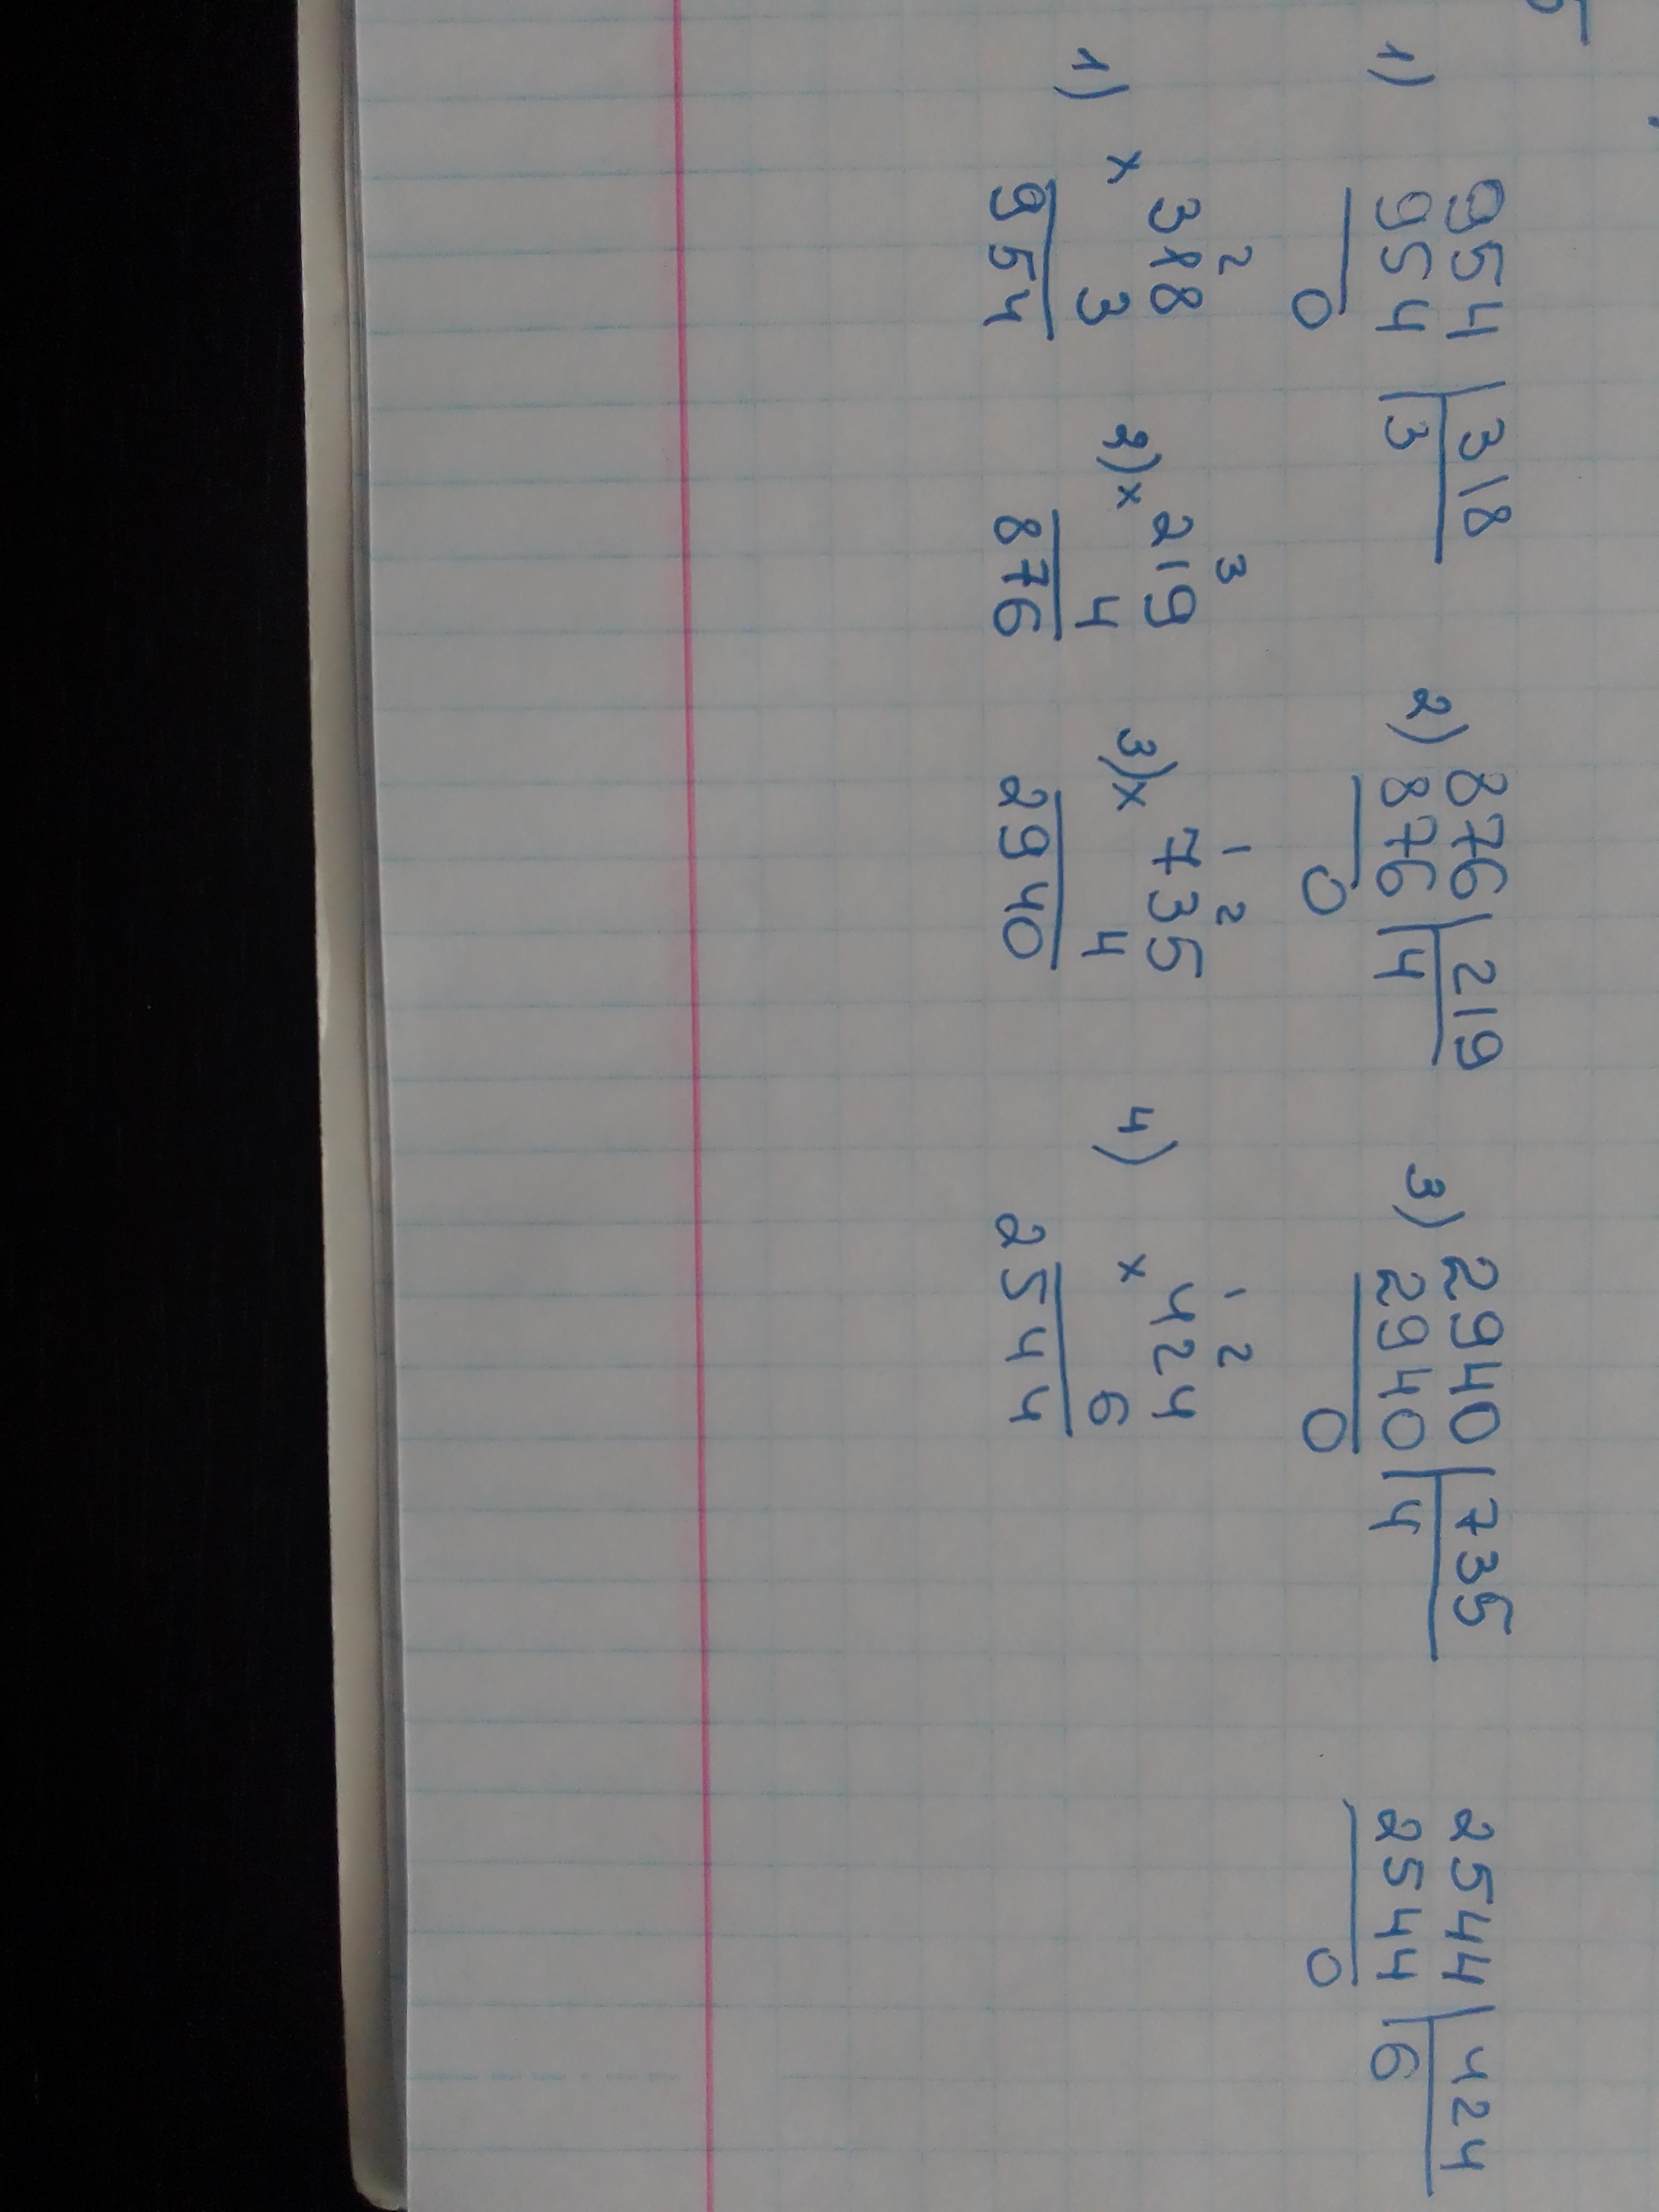 1) 954 | 318 2) 876 | 219 3) 2940 | 735 2544 | 424
954 | 3 876 | 4 2940 | 4 2544 | 6
0 0 0 0
2 3 1 2 1 2
1) x 318 2) x 219 3) x 735 4) x 424
3 4 4 6
954 876 2940 2544